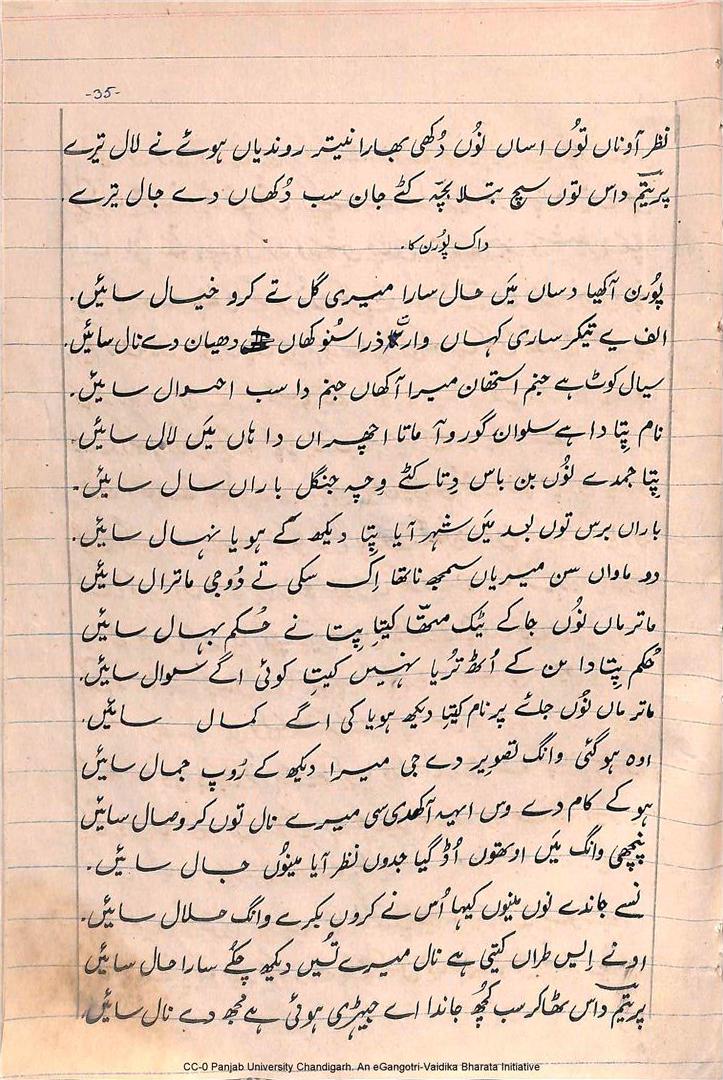 -35-
نظر آوناں توُں اساں نوُں دُکھی بھارا نیتر روندیاں ہوئے نے لال تیرے
پریتمؔ داس توں سچ بتلا بچّہ کٹے جان سب دُکھاں دے جال تیرے.
داک پوُرن کا.
پوُرن آکھیا دساں مَیں حال سارا میری گل تے کرو خیال سائیں.
الف یے تیکر ساری کہاں وارتا ذرا سنو کھاں دھیان دے نال سائیں.
سیال کوٹ ہے جنم استھان میرا آکھاں جنم دا سب احوال سائیں.
نام پِتا دا ہے سلوان گورو آ ماتا اچھراں دا ہاں مَیں لال سائیں.
پِتا جمدے نوُں بن باس دِتا کٹے وِچہ جنگل باراں سال سائیں.
باراں برس توں بعد مَیں شہر آیا پِتا دیکھ کے ہویا نہال سائیں.
دو ماواں سن میریاں سمجھ ناتھا اِک سکی تے دُوجی ماترال سائیں
ماتر ماں نوُں جا کے ٹیک متھّا کیتا پِتا نے حُکم بہال سائیں
حُکم پِتا دا من کے اُٹھ تُریا نہیں کیتا کوئی اگے سوال سائیں.
ماتر ماں نوُں جائے پرنام کیتا دیکھ ہویا کی اگے کمال سائیں.
اوہ ہو گئی وانگ تصویر دے جی میرا دیکھ کے رُوپ جمال سائیں
ہو کے کام دے وس ایہہ آکھدی سی میرے نال توں کر وصال سائیں
پنچھی وانگ مَیں اوتھوں اُڈ گیا جدوں نظر آیا مینوُں جال سائیں.
نسے جاندے نوں مینوں کیہا اُس نے کروں بکرے وانگ حلال سائیں.
اونے اِس طراں کیتی ہے نال میرے تُسیں دیکھ چکُے سارا حال سائیں
پریتمؔ داس ٹھاکر سب کُچھ جاندا اے جیہڑی ہوئی ہے مُجھ دے نال سائیں.
CC-0 Panjab University Chandigarh. An eGangotri-Vaidika Bharata Initiative